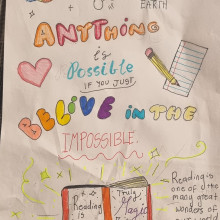 EARTH
ANYTHING
is
Possible
IF YOU JUST
BELIVE IN THE
IMPOSSIBLE.
Reading is
one of the
many great
wonders of
Reading
is
Truly,
Magic